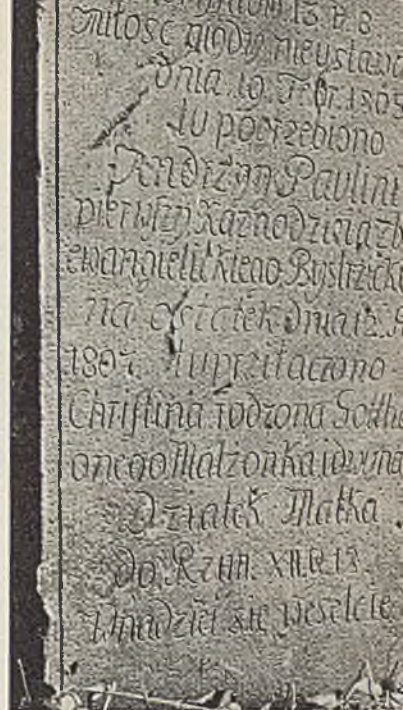 13 v 8
miłosc nigdy nieustan
dnia 19. Febr. 1805
tu pogrzebiono
Jendrzyn Paulini
pierwszy Kaznodzieia Zb
ewangielickiego Bystrzick
na ostatek dnia 12.
1807. tu prziłaczono
Christina rodzona Gotth
onego Malzonka i
Dziatek Matka
do Rzym. XII. v. 12
Wnadziei sie weselcie